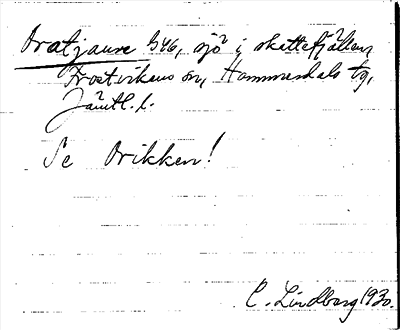 Oratjaure G46, sjö i skattefjällen,
Frostvikens sn, Hammerdals tg,
Jämtl. l.
Se Orikken!
C. Lindberg 1930.